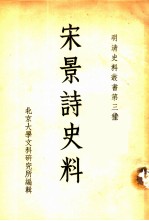 明清史料叢書第三種
宋景詩史料
北京大學文科研究所編輯